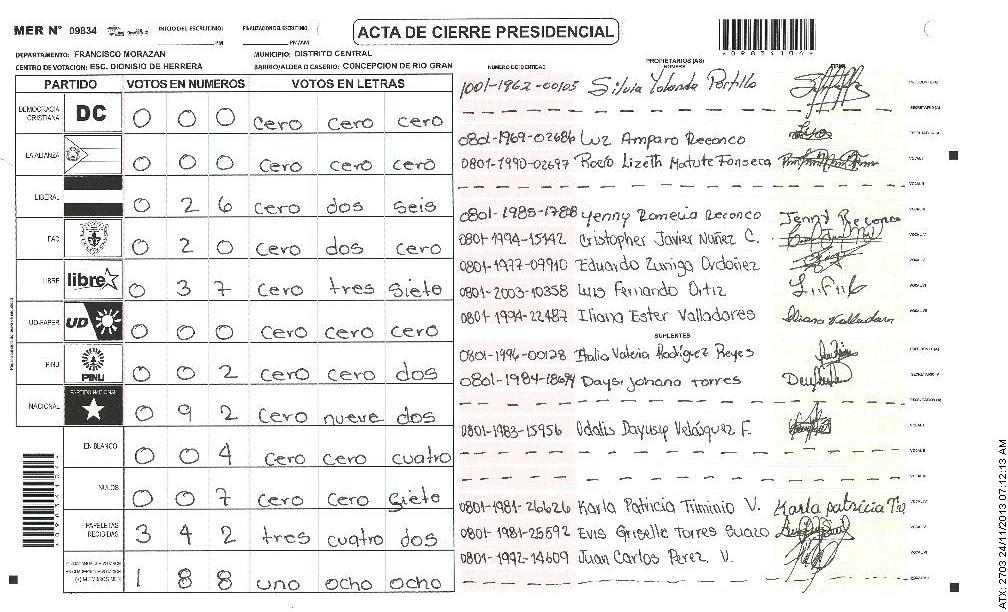 MER N° 09834 INICIO DEL ESCRUTINIO: PM FINALIZACION DEL ESCRUTINIO: PM/AM
ACTA DE CIERRE PRESIDENCIAL
DEPARTAMENTO: FRANCISCO MORAZAN MUNICIPIO: DISTRITO CENTRAL
CENTRO DE VOTACION: ESC. DIONISIO DE HERRERA BARRIO/ALDEA O CASERIO: CONCEPCION DE RIO GRAN
PARTIDO VOTOS EN NUMEROS VOTOS EN LETRAS
DEMOCRACIA CRISTIANA DC 0 0 0 cero cero cero
LA ALIANZA 0 0 0 cero cero cero
LIBERAL 0 2 6 cero dos seis
PAC 0 2 0 cero dos cero
LIBRE libre 0 3 7 cero tres siete
UD-FAPER UD 0 0 0 cero cero cero
PINU PINU 0 0 2 cero cero dos
NACIONAL PARTIDO NACIONAL 0 9 2 cero nueve dos
EN BLANCO 0 0 4 cero cero cuatro
NULOS 0 0 7 cero cero siete
PAPELETAS RECIBIDAS 3 4 2 tres cuatro dos
(+) MIEMBROS MER 1 8 8 uno ocho ocho
NUMERO DE IDENTIDAD PROPIETARIOS (AS) NOMBRE FIRMA
1001-1962-00105 Silvia Yolanda Portillo PRESIDENTE (A)
SECRETARIO (A)
0801-1969-02686 Luz Amparo Reconco ESCRUTADOR (A)
0801-1990-02697 Rocio Lizeth Matute Fonseca VOCAL I
VOCAL II
0801-1985-1788 Yenny Romelia Reconco Jenny Reconco VOCAL III
0801-1994-15142 Cristopher Javier Nuñez C. VOCAL IV
0801-1977-09910 Eduardo Zuniga Ordoñez VOCAL V
0801-2003-10358 Luis Fernando Ortiz VOCAL VI
0801-1994-22487 Iliana Ester Valladores Iliana Valladares
SUPLENTES
0801-1996-00128 Italia Valeria Rodriguez Reyes PRESIDENTE (A)
0801-1984-18694 Daysi Johana Torres SECRETARIO (A)
ESCRUTADOR (A)
0801-1983-15956 Odalis Dayusep Velásquez F. VOCAL I
0801-1981-26626 Karla Patricia Triminio V. Karla patricia
0801-1981-25592 Evis Griselle Torres Suazo
0801-1972-14609 Juan Carlos Perez V.
ATX: 2703 24/11/2013 07:12:13 AM